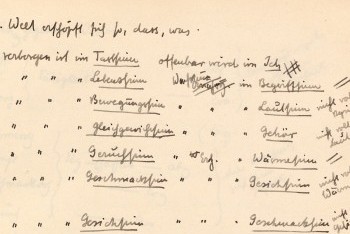 . Welt erschöpft sich so, dass, was
verborgen ist im Tastsinn offenbar wird im Ich
" " " Lebenssinn " " Begriffssinn
" " " Bewegungssinn " " " Lautsinn nicht
" " " Gleichgewichtssinn " " " Gehör nicht
" " " Geruchssinn " " Wärmesinn
" " " Geschmackssinn " " " Gesichtssinn nicht
" " " Gesichtssinn " " " Geschmackssinn nicht